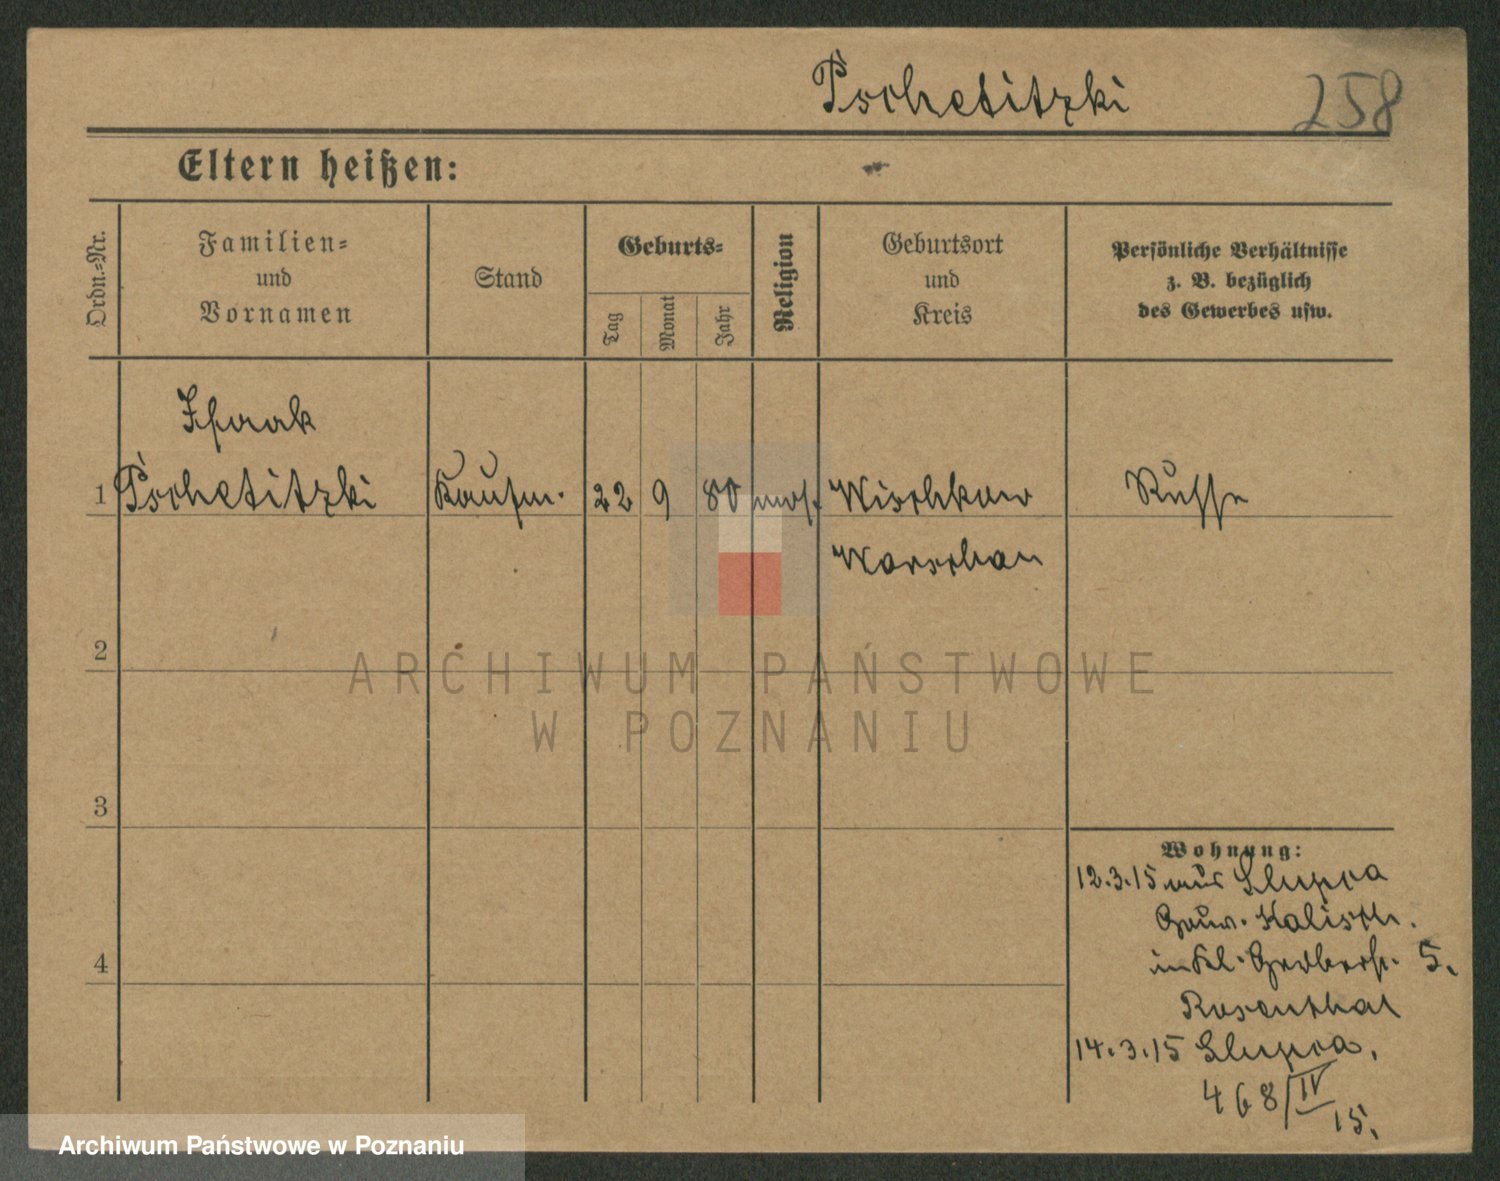 Pschetitzki 258
Eltern heißen:
Ordn.=Nr.
Familien=
und
Vornamen
Stand
Geburts=
Tag
Monat
Jahr
Religion
Geburtsort
und
Kreis
Persönliche Verhältnisse
z. B. bezüglich
des Gewerbes usw.
Isaak
1 Pschetitzki Kaufm. 22 9 80 mos. Wischkow Russe
Warschau
2
3
4
Wohnung:
12.3.15 aus Slupca
Gouv. Kalisch.
in Kl. Gerberstr. 5.
Rosenthal
14.3.15 Slupca.
468/IV
15.
ARCHIWUM PAŃSTWOWE
W POZNANIU
Archiwum Państwowe w Poznaniu